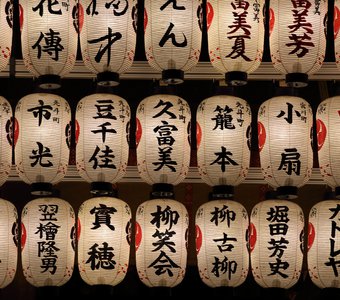 花傳
えん
富美夏
富美芳
市光
豆千佳
久富美
籠本
小扇
翌檜隆勇
實穂
柳笑会
柳古柳
堀田芳史
カトレヤ